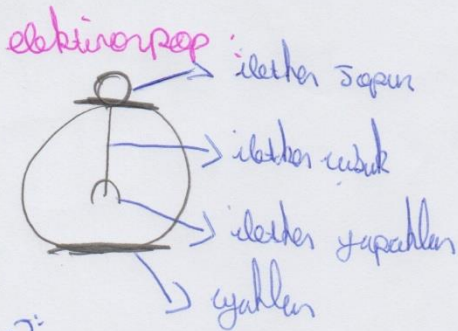 elektiroskop:
iletken topuz
iletken çubuk
iletken yapraklar
ayakları